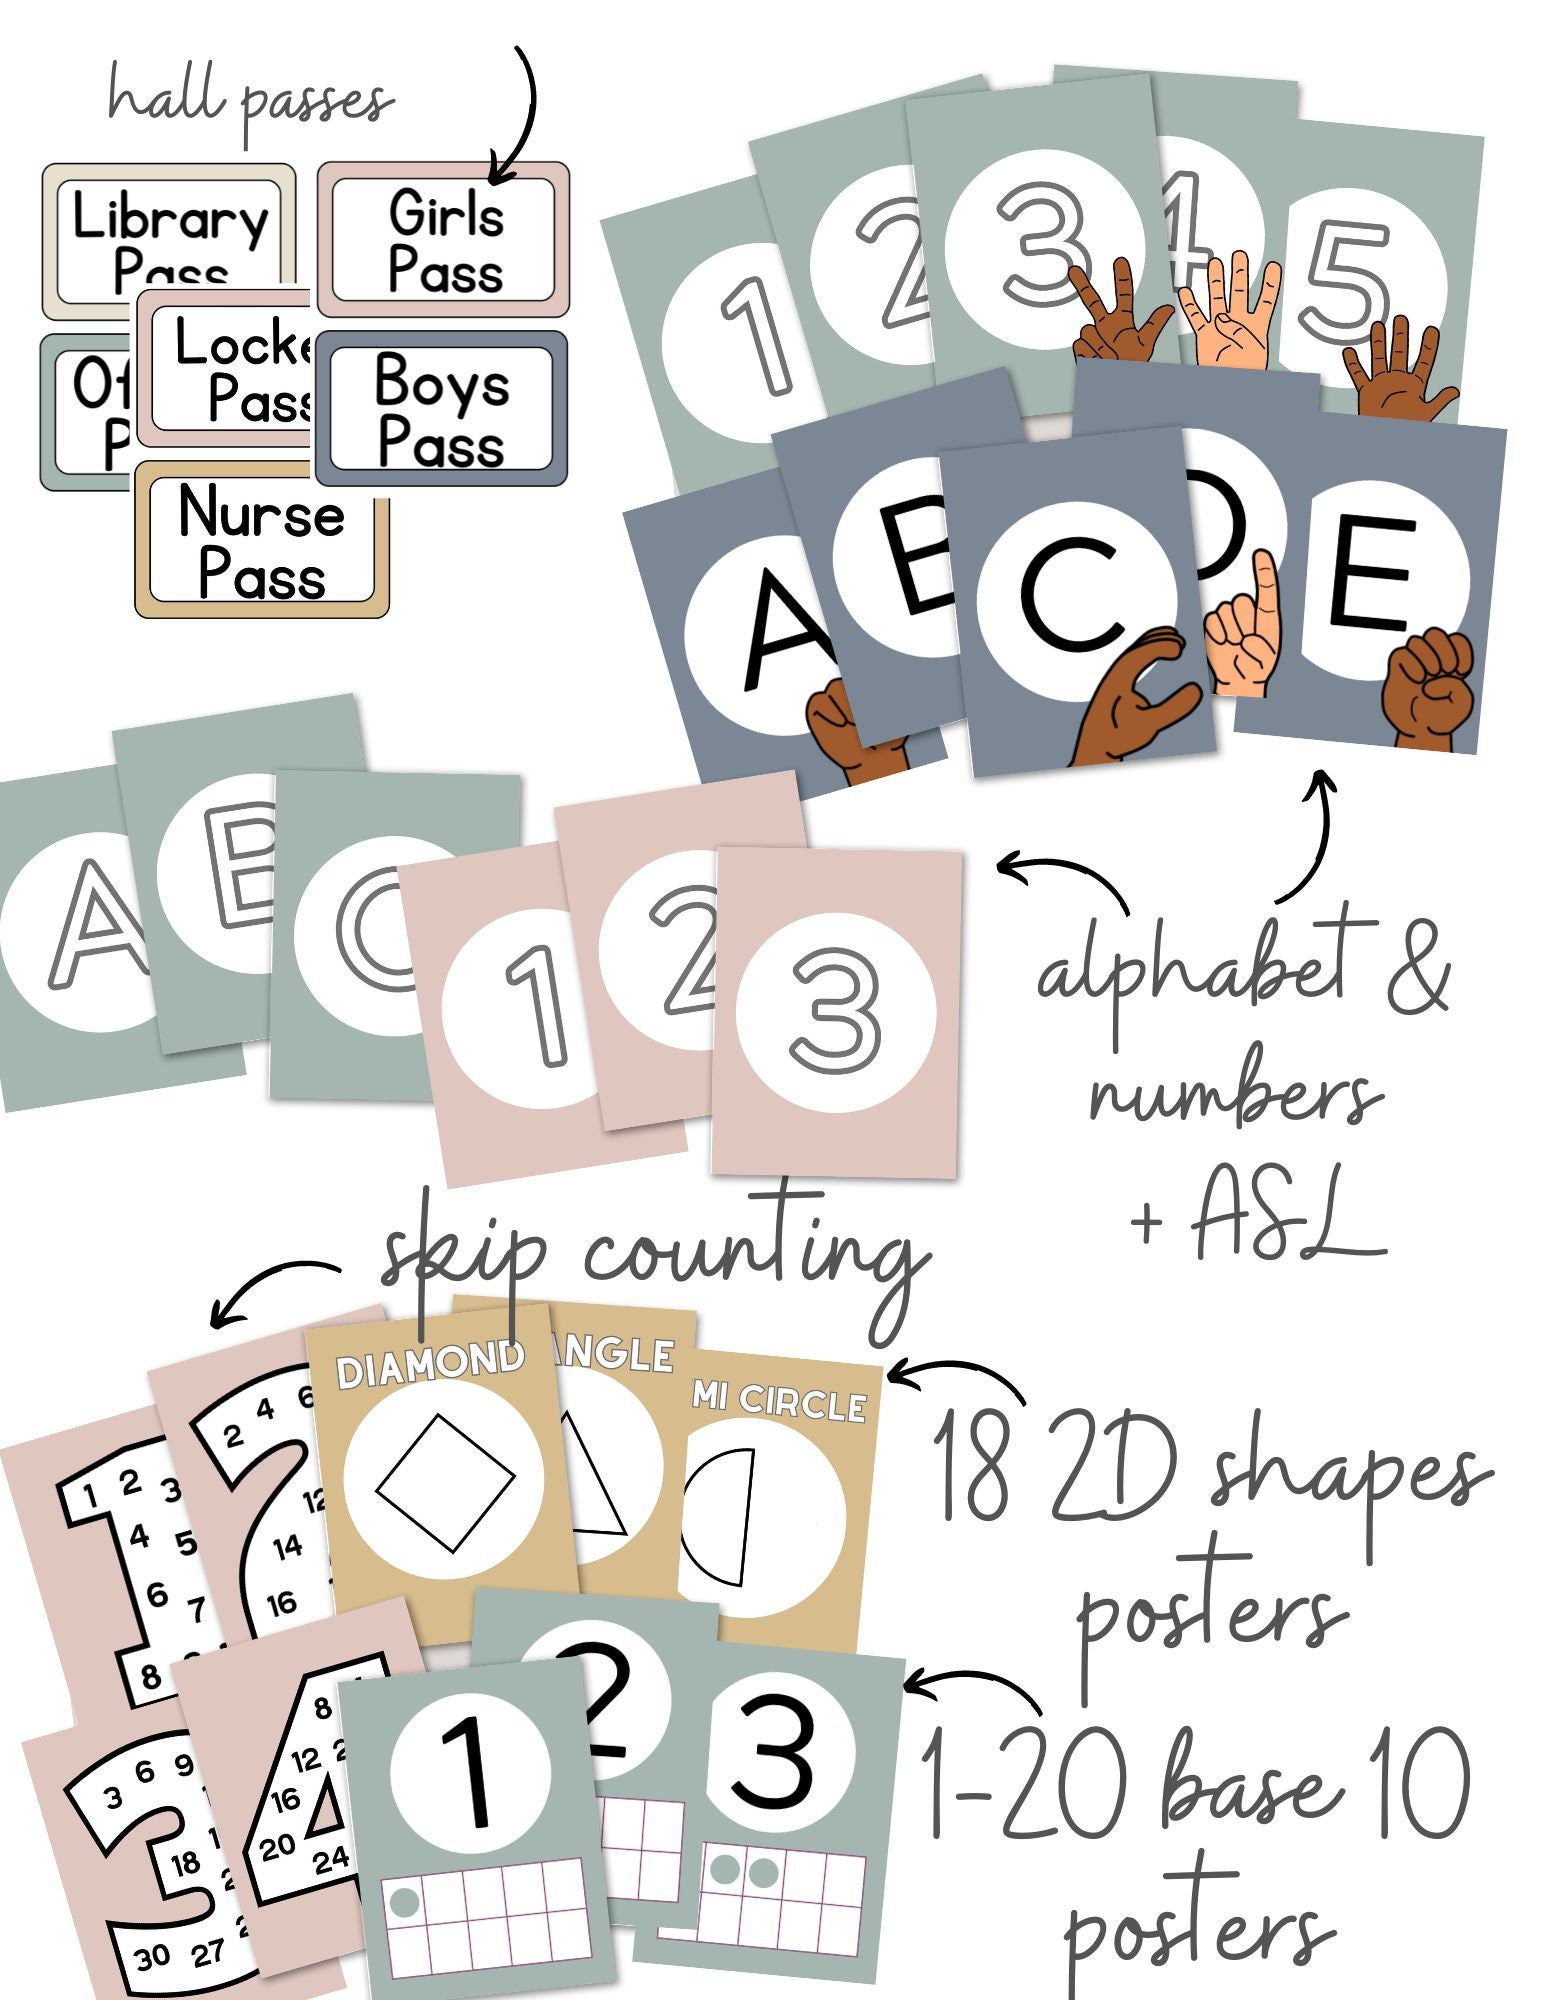 hall passes
Library
Pass
Girls
Pass
Locke
Pass
Of
P
Boys
Pass
Nurse
Pass
1
2
3
4
5
A
B
C
D
E
A
B
C
1
2
3
alphabet &
numbers
+ ASL
skip counting
DIAMOND
ANGLE
MI CIRCLE
18 2D shapes
posters
1 2 3
4 5
6 7
8
2 4 6
12
14
16
3 6 9
18
30 27
8
12
16
20
24
1
2
3
1-20 base 10
posters